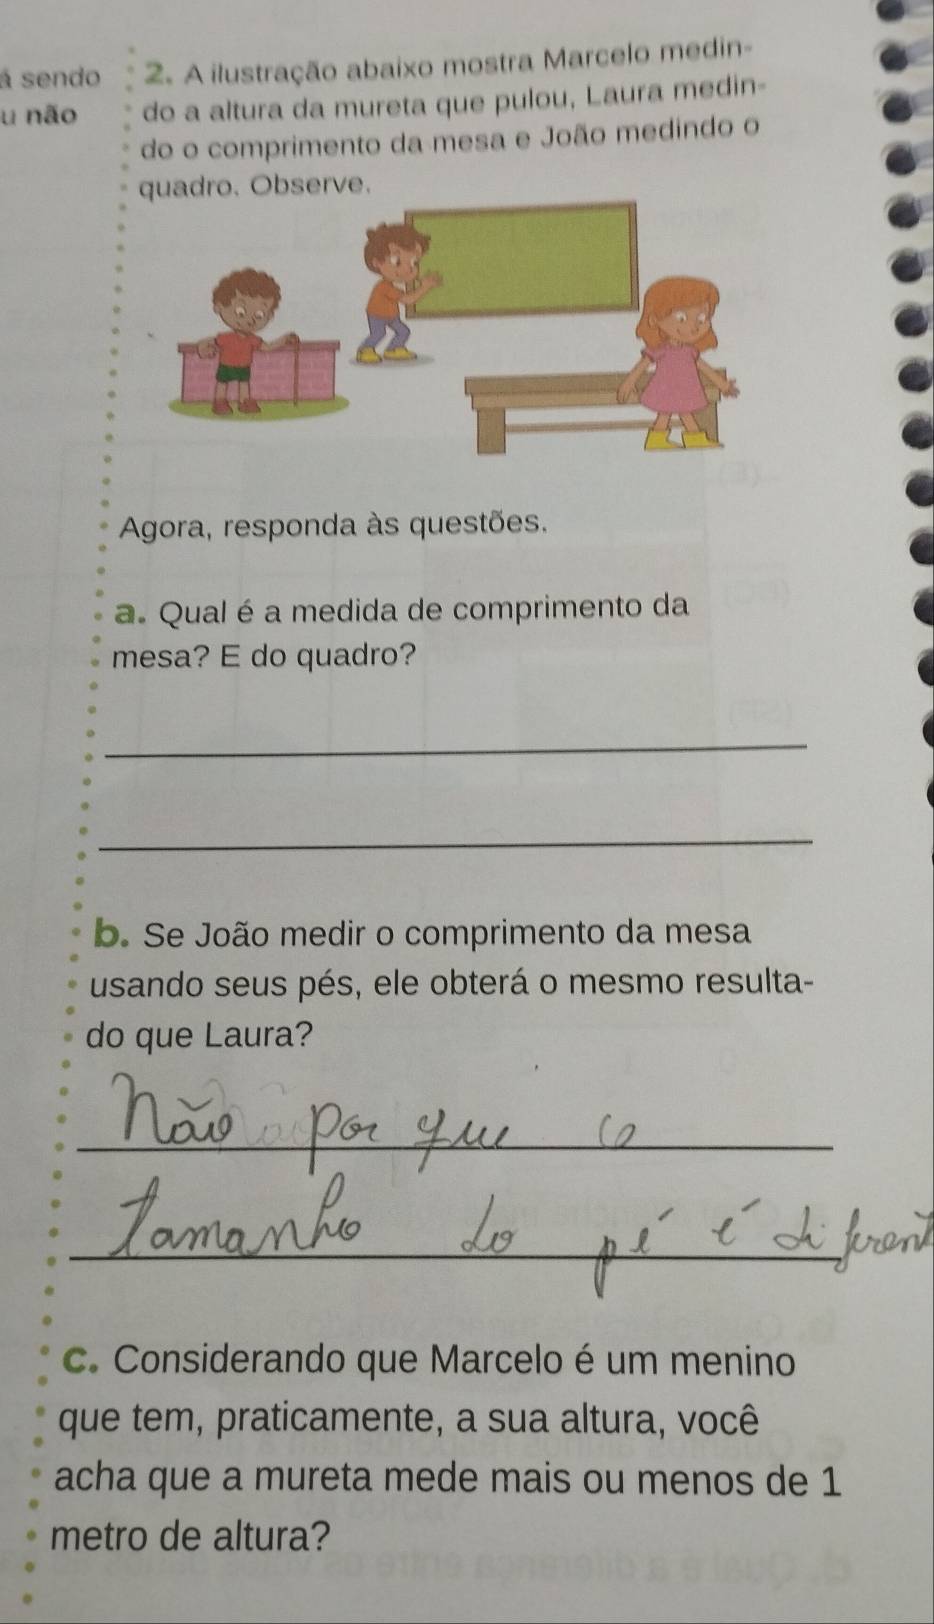 á sendo
u não
2. A ilustração abaixo mostra Marcelo medin-
do a altura da mureta que pulou, Laura medin-
do o comprimento da mesa e João medindo o
quadro. Observe.
Agora, responda às questões.
a. Qual é a medida de comprimento da
mesa? E do quadro?
b. Se João medir o comprimento da mesa
usando seus pés, ele obterá o mesmo resulta-
do que Laura?
Não por que o
Tamanho do pé é diferent
c. Considerando que Marcelo é um menino
que tem, praticamente, a sua altura, você
acha que a mureta mede mais ou menos de 1
metro de altura?